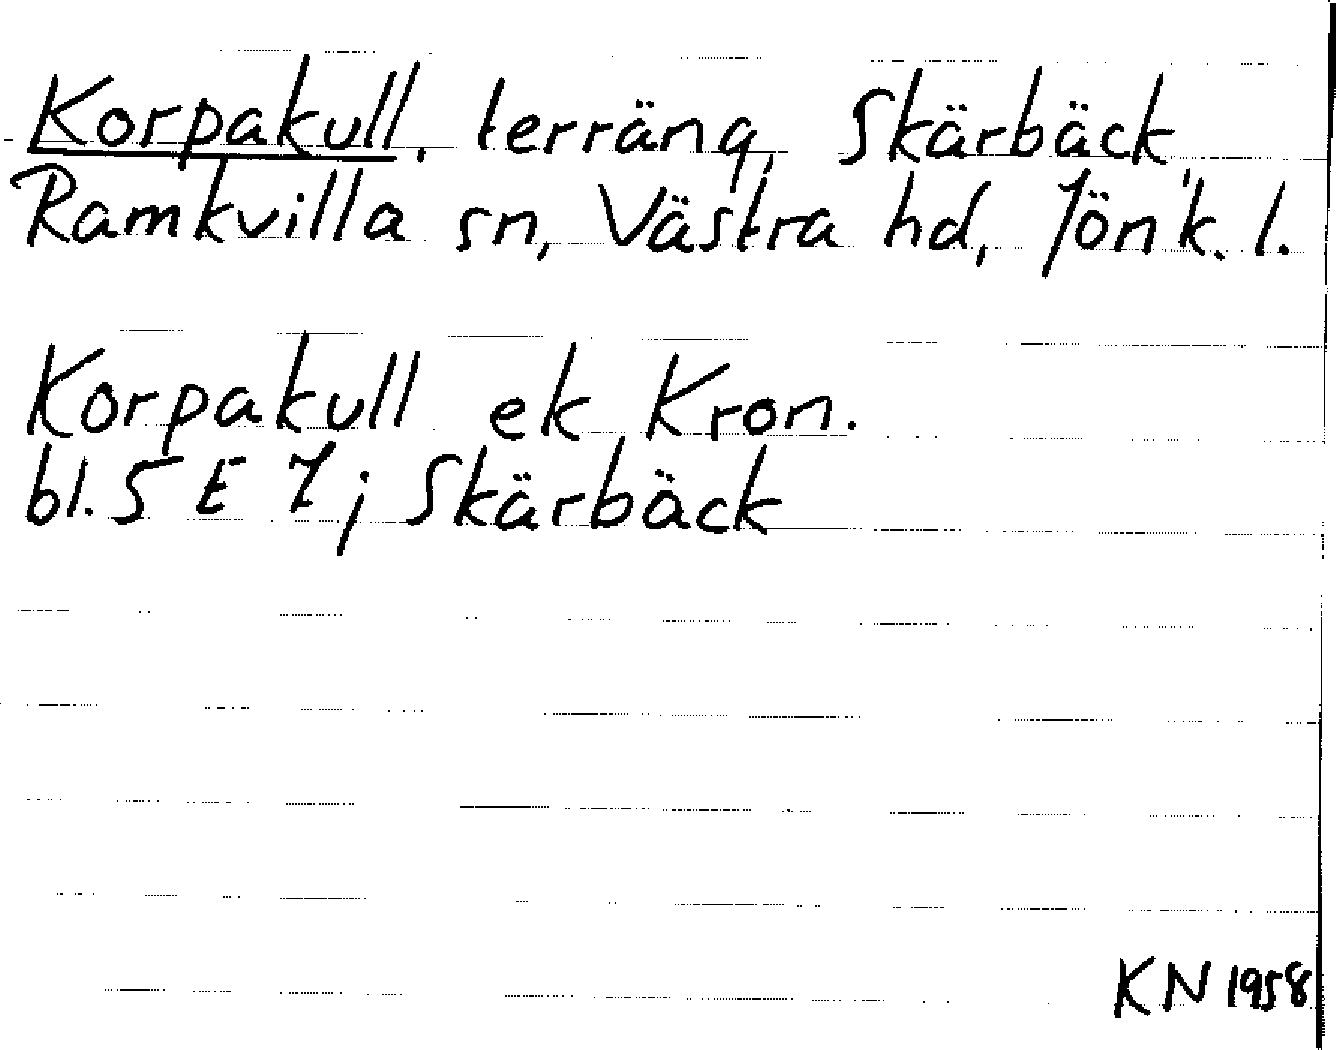 Korpakull, terräng, Skärbäck,
Ramkvilla sn, Västra hd, Jönk. l.
Korpakull ek Kron.
bl. 5 E 7; Skärbäck
KN 1958